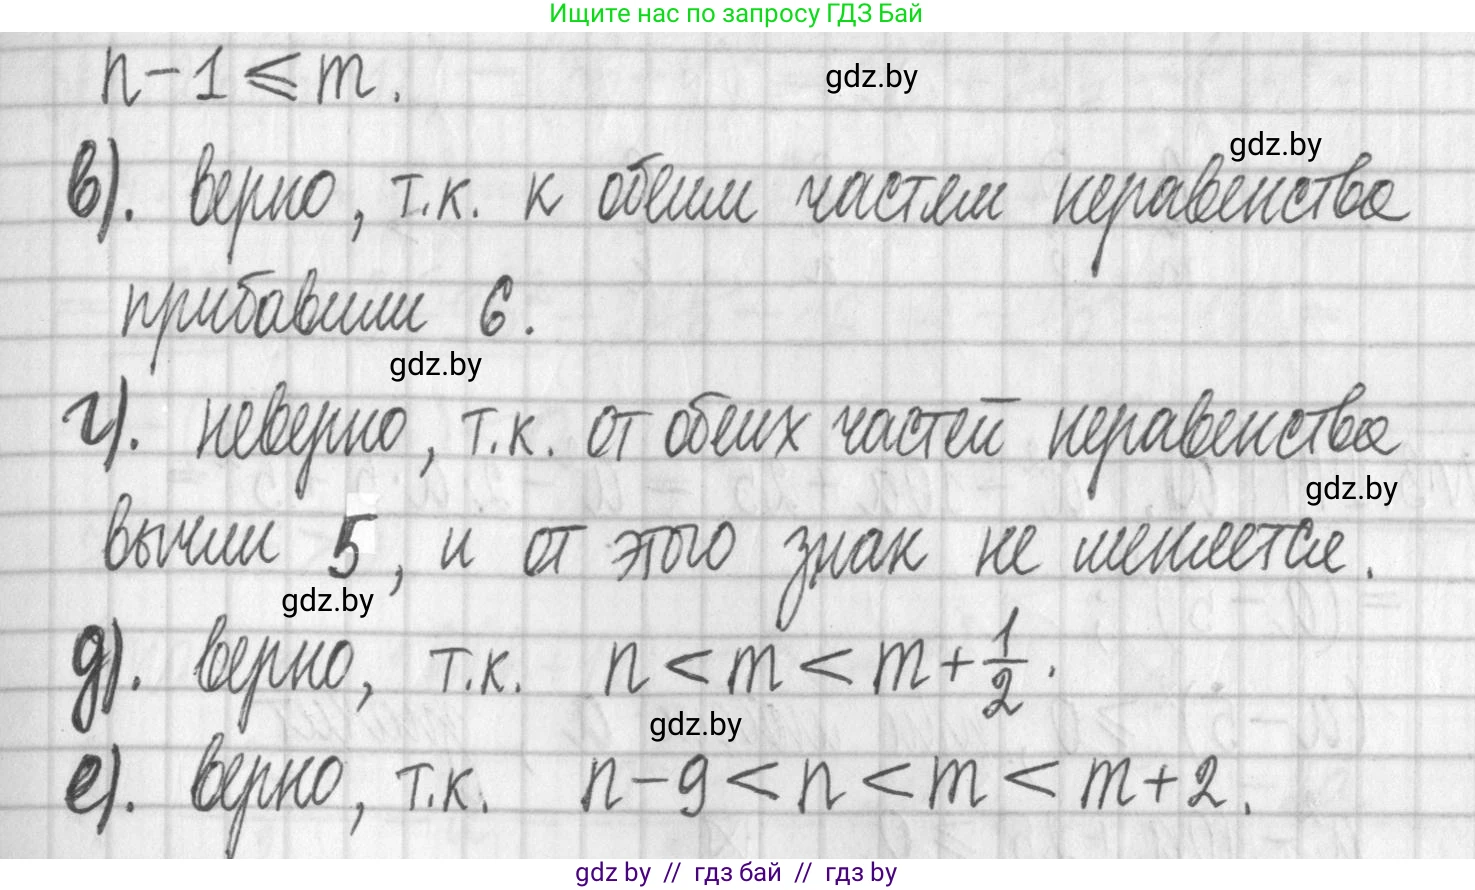 Ищите нас по запросу ГДЗ Бай
n - 1 ⩽ m.
gdz.by
gdz.by
в). верно, т.к. к обеим частям неравенства
прибавили 6.
gdz.by
г). неверно, т.к. от обеих частей неравенства
gdz.by
вычли 5, и от этого знак не меняется.
gdz.by
д). верно, т.к. n < m < m + 1/2.
gdz.by
е). верно, т.к. n - 9 < n < m < m + 2.
gdz.by // гдз бай // гдз by